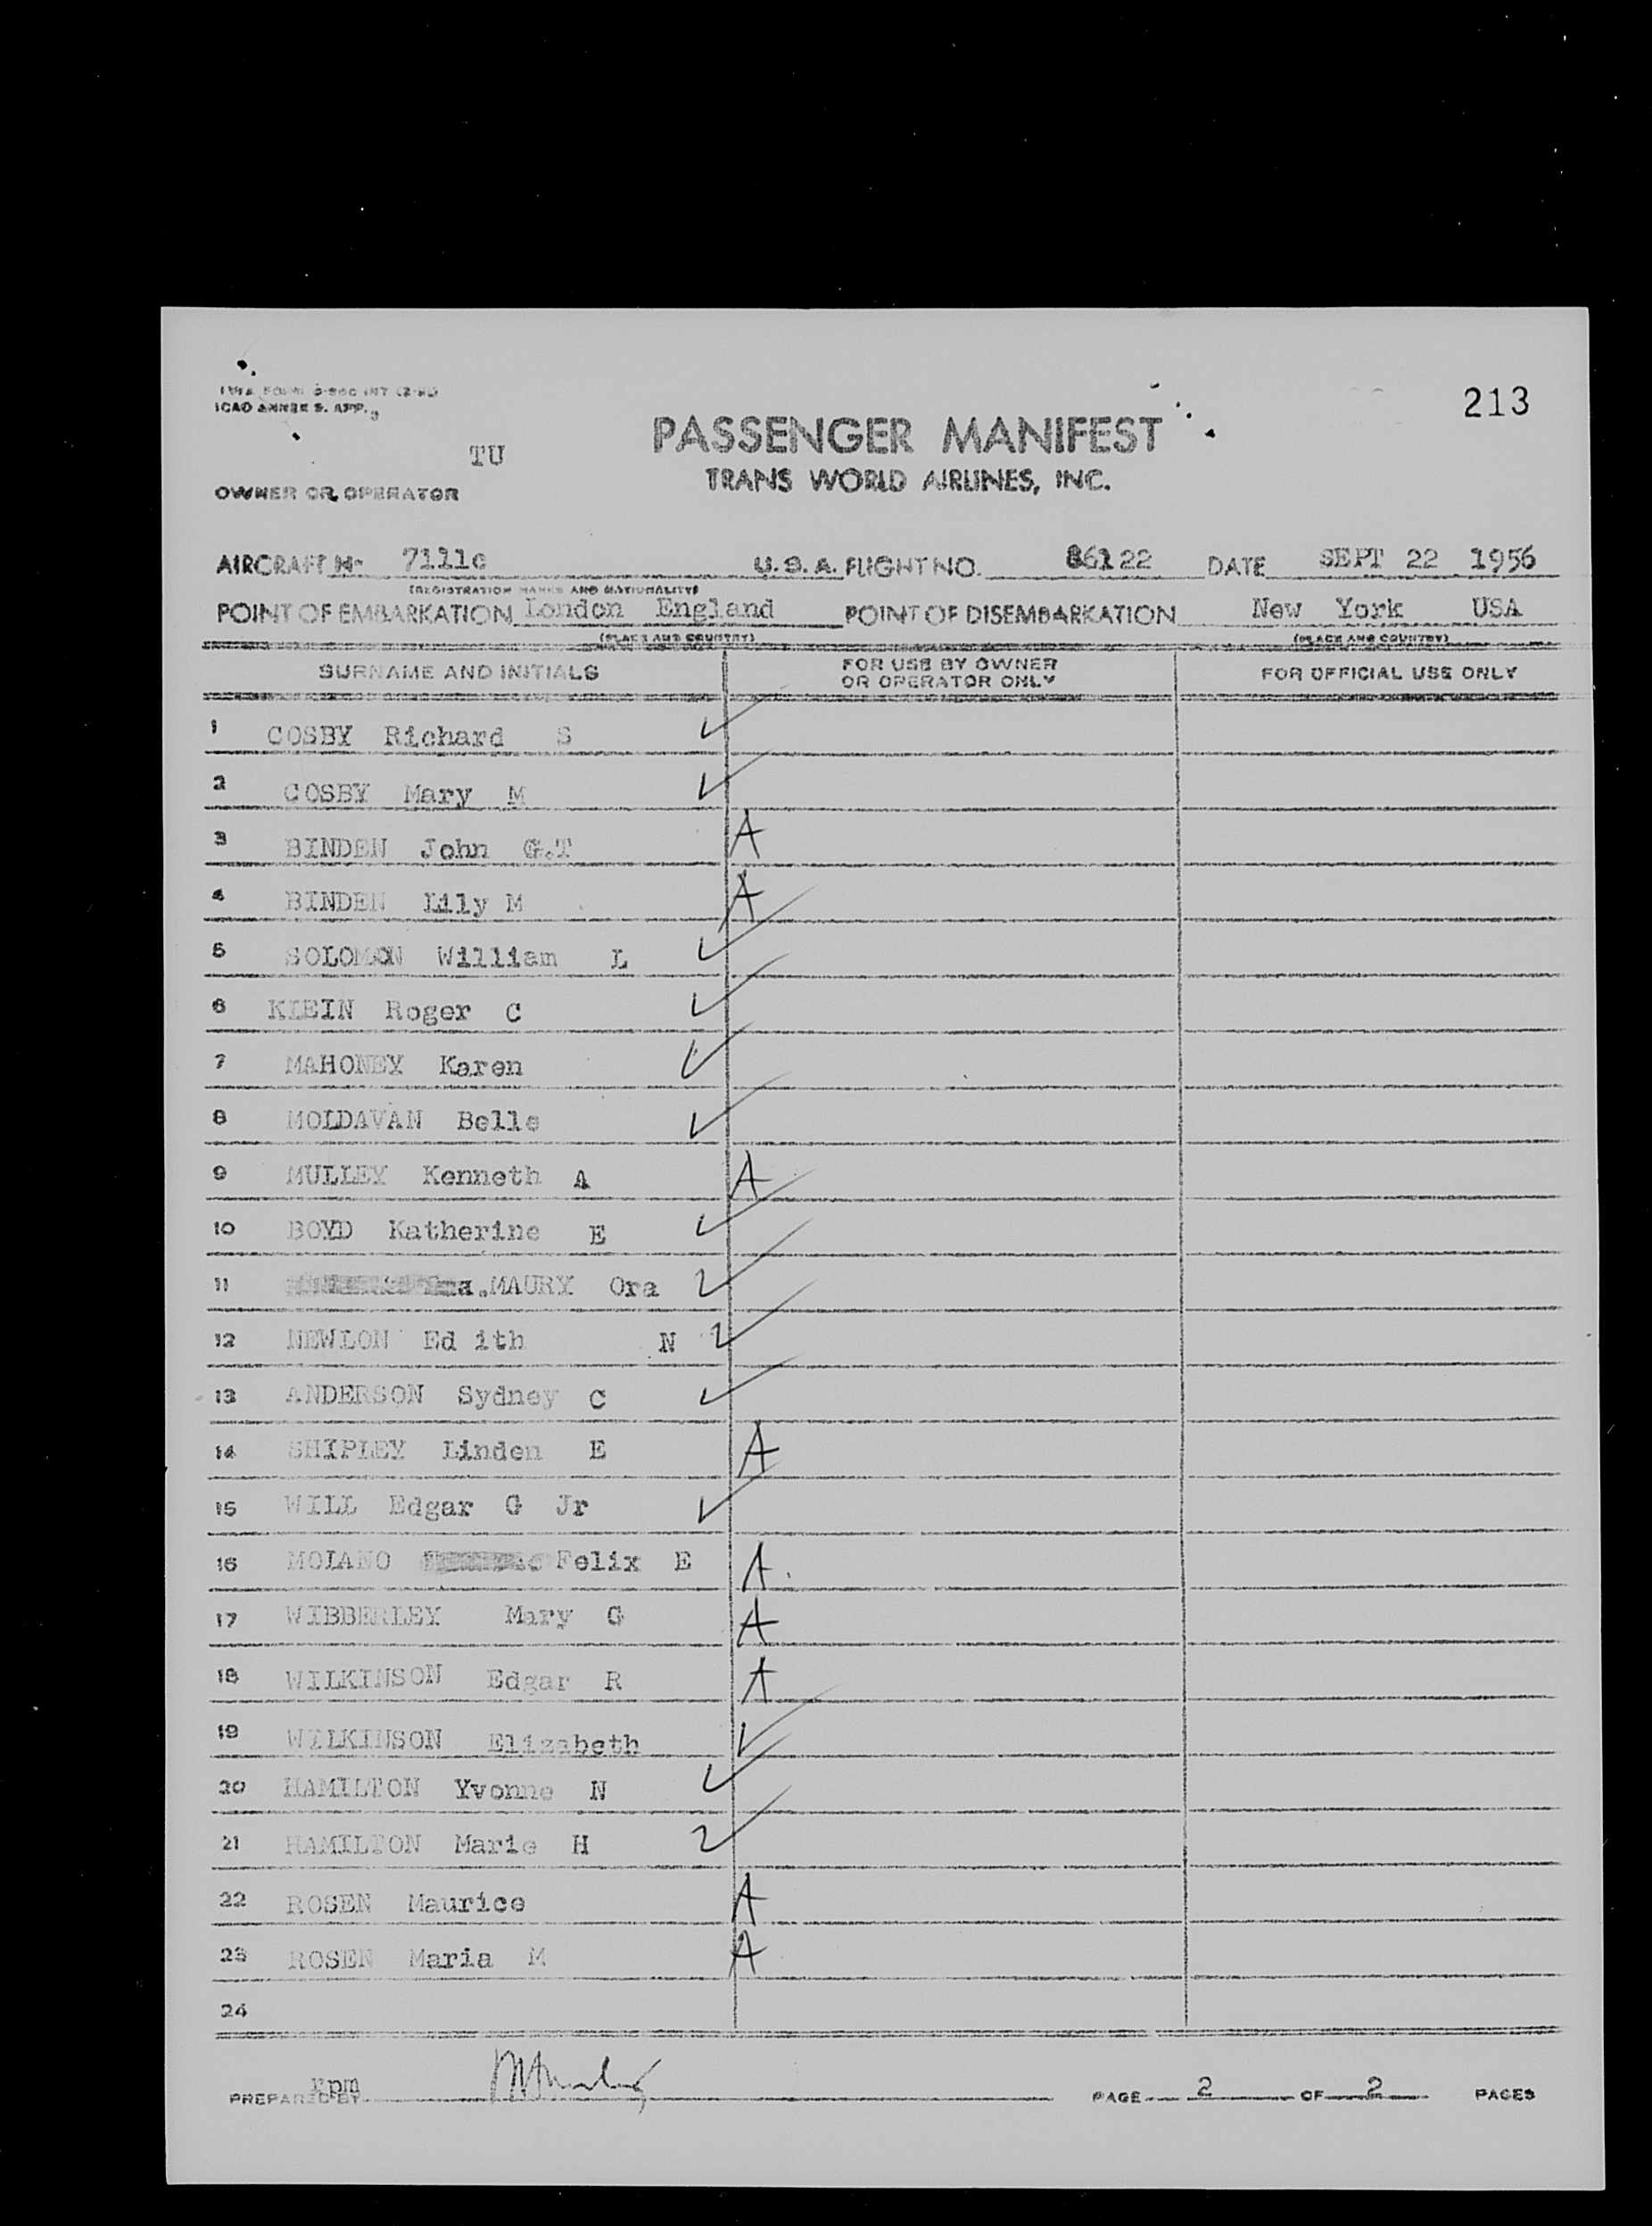 ICAO ANNEX 9. APP. 3
213
PASSENGER MANIFEST
TU
TRANS WORLD AIRLINES, INC.
OWNER OR OPERATOR
AIRCRAFT N- 7111c U. S. A. FLIGHT NO. 86122 DATE SEPT 22 1956
(REGISTRATION MARKS AND NATIONALITY)
POINT OF EMBARKATION London England POINT OF DISEMBARKATION New York USA
(PLACE AND COUNTRY) (PLACE AND COUNTRY)
SURNAME AND INITIALS FOR USE BY OWNER OR OPERATOR ONLY FOR OFFICIAL USE ONLY
1 COSBY Richard S ✓
2 COSBY Mary M ✓
3 BINDEN John G.T A
4 BINDEN Lily M A
5 SOLOMON William L ✓
6 KLEIN Roger C ✓
7 MAHONEY Karen ✓
8 MOLDAVAN Belle ✓
9 MULLEY Kenneth A A
10 BOYD Katherine E ✓
11 MAURY Ora ✓
12 NEWLON Ed ith N ✓
13 ANDERSON Sydney C ✓
14 SHIPLEY Linden E A
15 WILL Edgar G Jr ✓
16 MOLANO Felix E A
17 WIBBERLEY Mary G A
18 WILKINSON Edgar R A
19 WILKINSON Elizabeth ✓
20 HAMILTON Yvonne N ✓
21 HAMILTON Marie H ✓
22 ROSEN Maurice A
23 ROSEN Maria M A
24
PREPARED BY PAGE 2 OF 2 PAGES